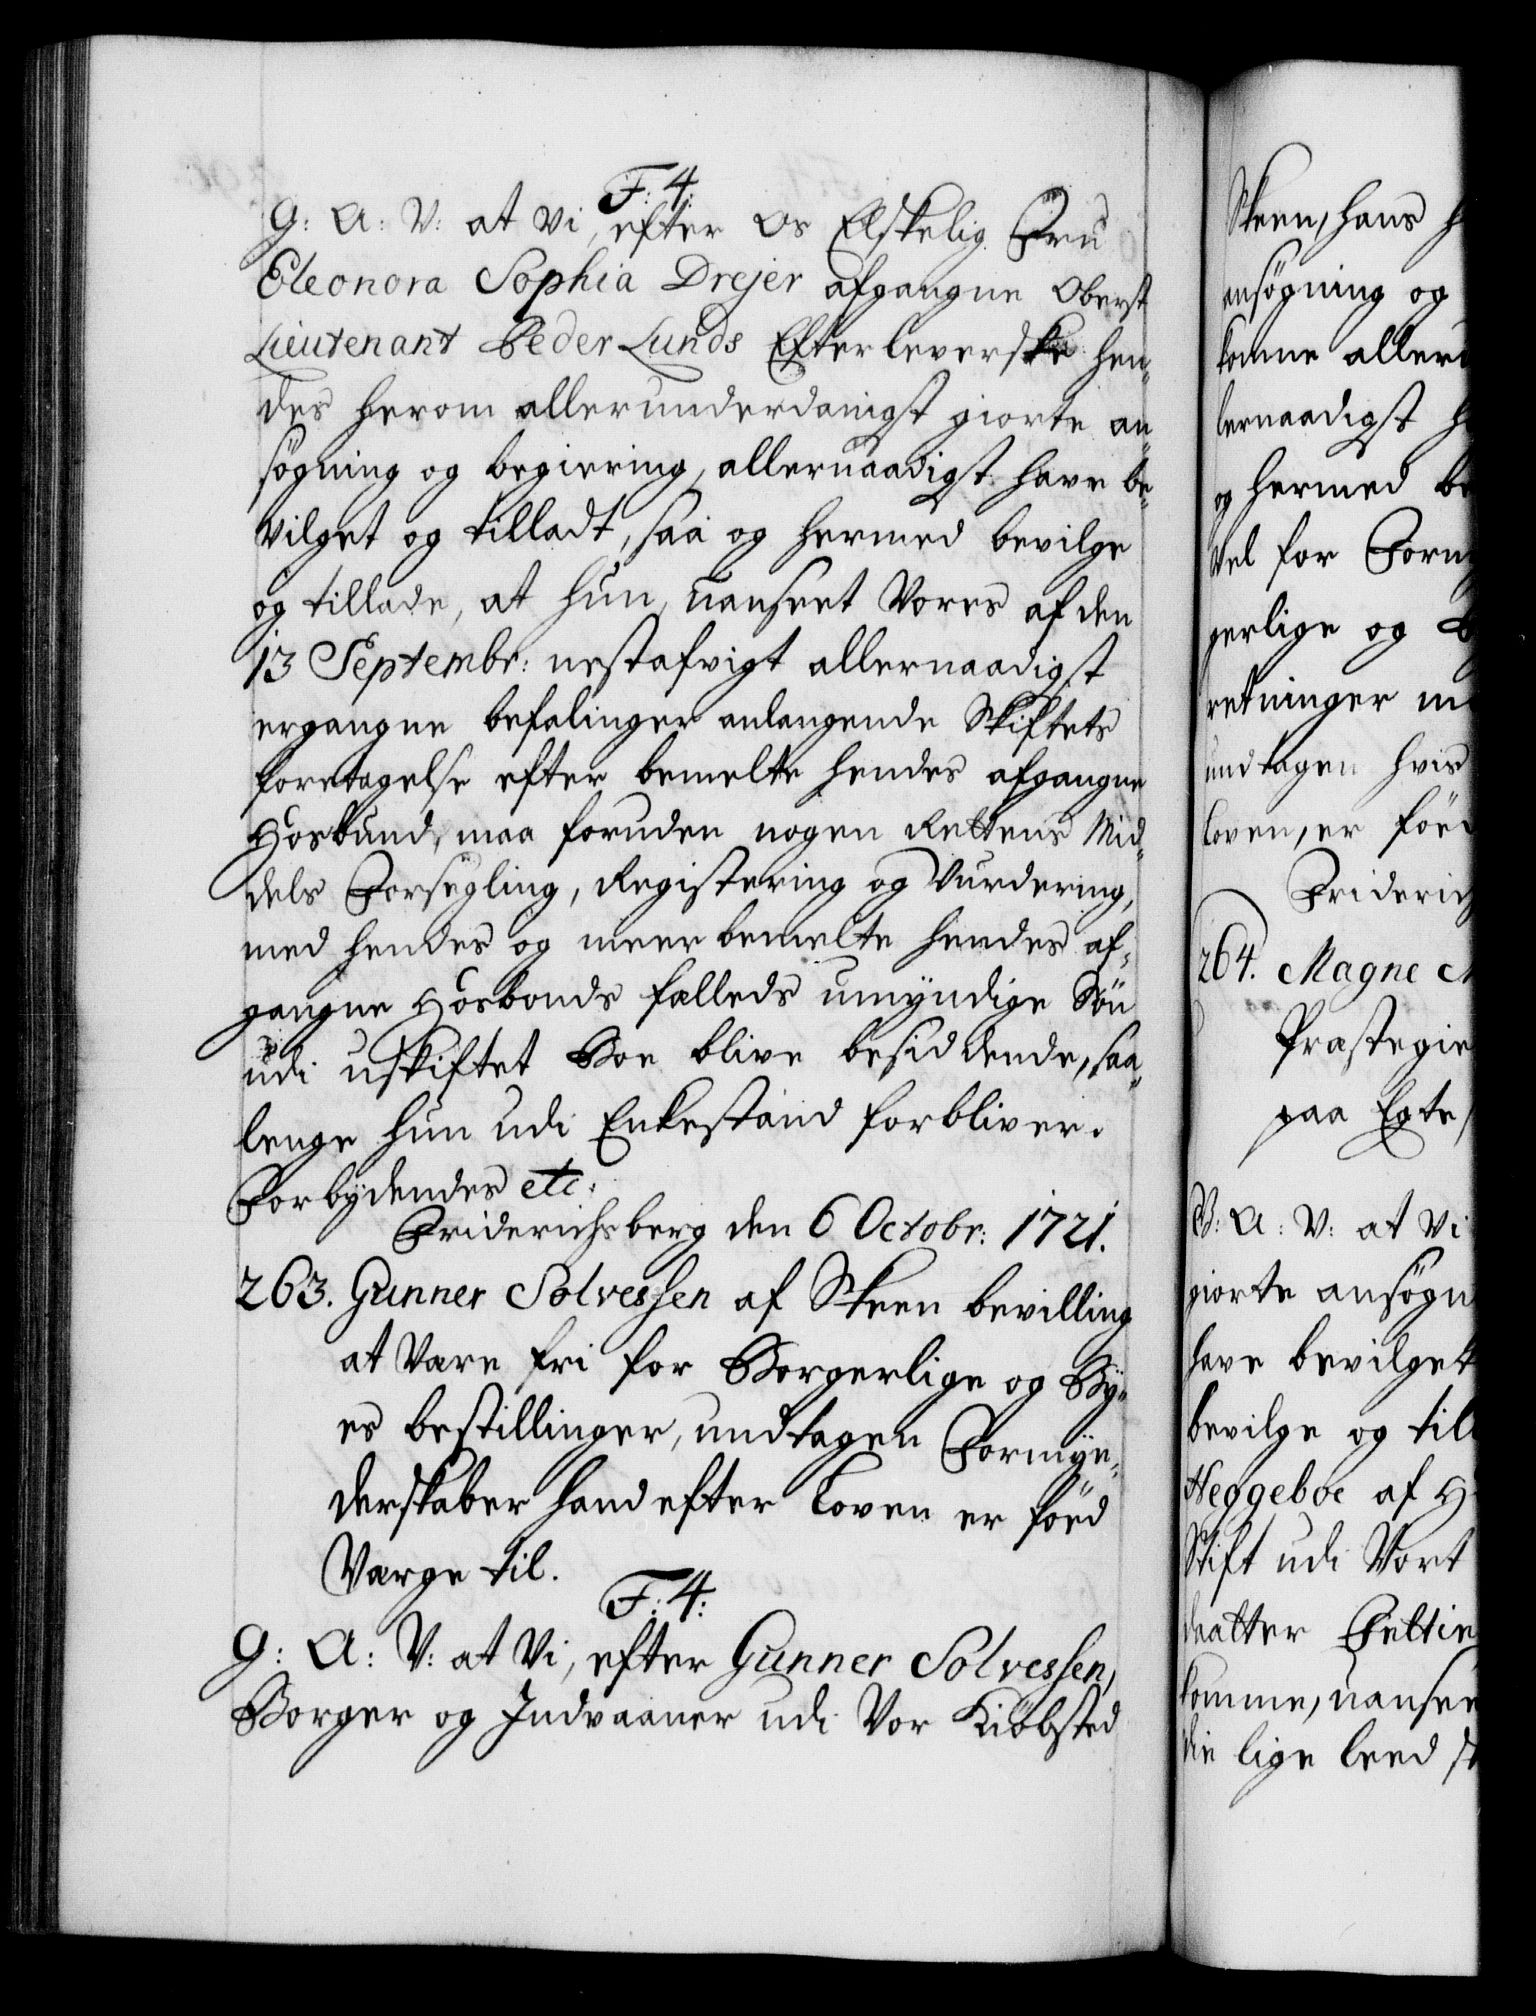 F: 4:
G: A: V: at Vi, efter Os Elskelig Fru
Eleonora Sophia Drejer afgangne Oberst
Lieutenant Peder Lunds Efterleverske hen„
des herom allerunderdanigst giorte an„
søgning og begiering, allernaadigst have be„
vilget og tilladt, saa og hermed bevilge
og tillade, at hun, uanseet Vores af den
13 Septembr: nestafvigt allernaadigst
ergangne befalinger anlangende Skiftets
foretagelse efter bemelte hendes afgangne
Hosbund, maa foruden nogen Rettens Mid„
dels Forsegling, Registering og Vurdering,
med hendes og meer bemelte hendes af„
gangne Hosbonds falleds umyndige Søn
udi uskiftet Boe blive besiddende, saa„
lenge hun udi Enkestand forbliver.
Forbydendes etc:
Friderichsberg den 6 Octobr: 1721.
263. Gunner Solvessen af Skeen bevilling
at Være fri for Borgerlige og By„
es bestillinger, undtagen Formÿn„
derskaber hand efter Loven er fød
Værge til.
F: 4:
G: A: V: at Vi, efter Gunner Solvessen,
Borger og Indvaaner udi Vor Kiøbsted
Skeen, hans
ansøgning og
komme aller
lernaadigst
og hermed be
vel for Form
gerlige og B
retninger
undtagen hvis
Loven, er fød
Friderich
264. Magne
Præstegie
paa Egte
G: A: V: at Vi
giorte ansøgn
have bevilgett
bevilge og till
Heggeboe af H
Stift udi Vort
daatter
komme, uansee
die lige leed